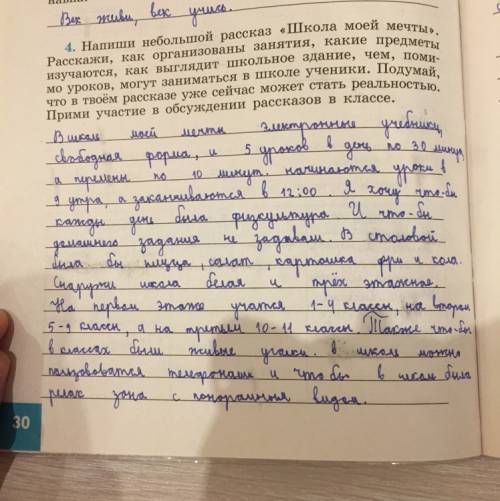 Век живи, век учись.
4. Напиши небольшой рассказ «Школа моей мечты».
Расскажи, как организованы занятия, какие предметы
изучаются, как выглядит школьное здание, чем, поми-
мо уроков, могут заниматься в школе ученики. Подумай,
что в твоём рассказе уже сейчас может стать реальностью.
Прими участие в обсуждении рассказов в классе.
В школе моей мечты электронные учебники,
свободная форма, и 5 уроков в день по 30 минут,
а перемены по 10 минут. начинаются уроки в
9 утра, а заканчиваются в 12:00. Я хочу что-бы
кажды день была физкультура. И что-бы
домашнего задания не задавали. В столовой
была бы пицца, салат, картошка фри и кола.
Снаружи школа белая и трёх этажное.
На первом этаже учатся 1-4 классы, на втором
5-9 классы, а на третьем 10-11 классы. Также что-бы
в классах были живые уголки. в школе можно
пользоватся телефонами и что бы в школе была
релах зона с понорамныя видом.
30